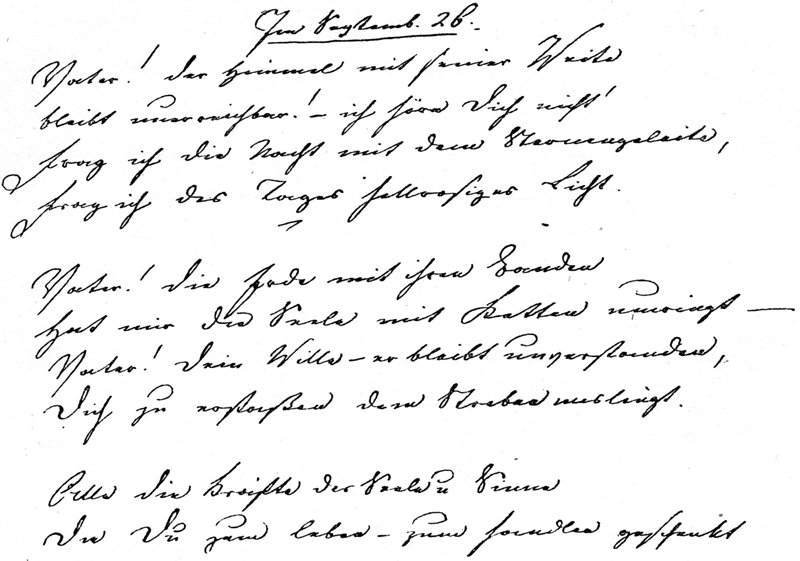 Im Septemb. 26.
Vater! der Himmel mit seiner Weite
bleibt unerreichbar! – ich höre Dich nicht!
frag ich die Nacht mit dem Sternengeleite,
frag ich des Tages hellrosiges Licht.
Vater! die Erde mit ihren Banden
Hat mir die Seele mit Ketten umringt –
Vater! Dein Wille – er bleibt unverstanden,
Dich zu erfassen dem Streben mislingt.
Alle die Kräfte der Seele u Sinne
Die Du zum leben – zum handlen geschenkt